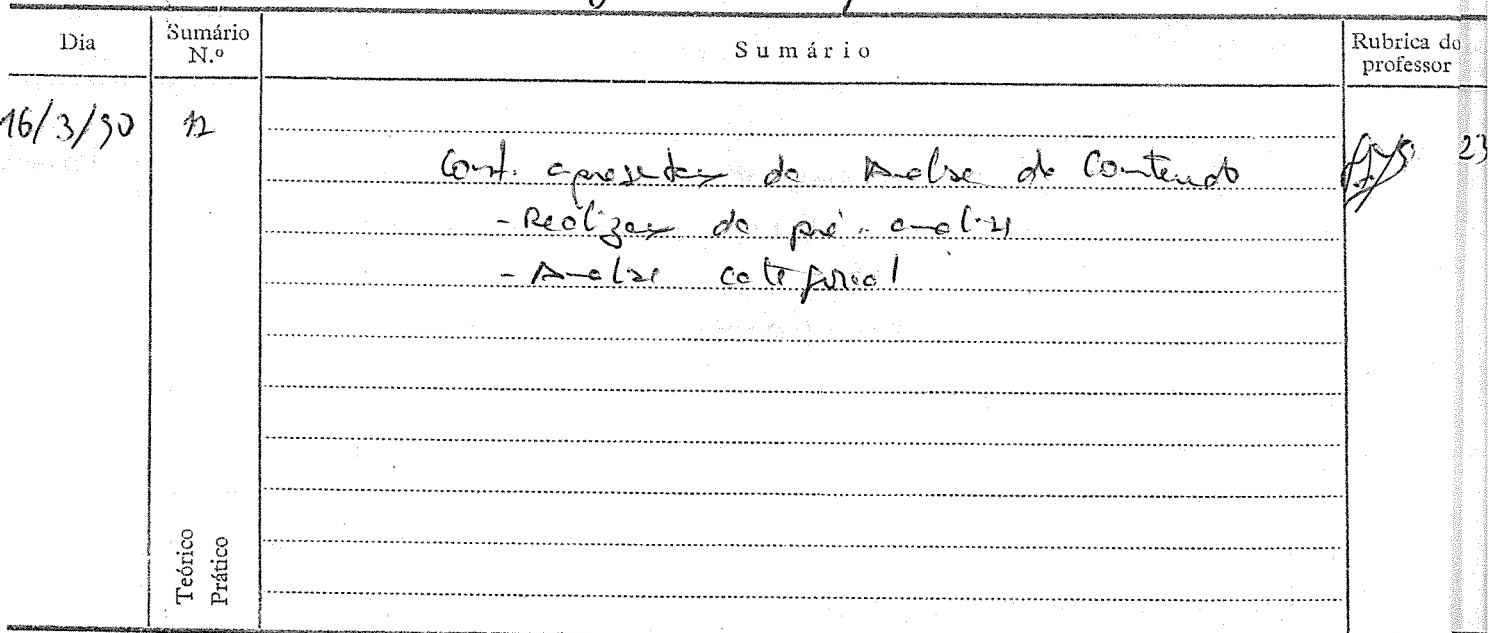 Dia Sumário N.º Sumário Rubrica do professor
16/3/90 12
Cont. apresentação da Análise de Conteúdo
- Realização da pré-análise
- Análise categorial
23
Teórico
Prático